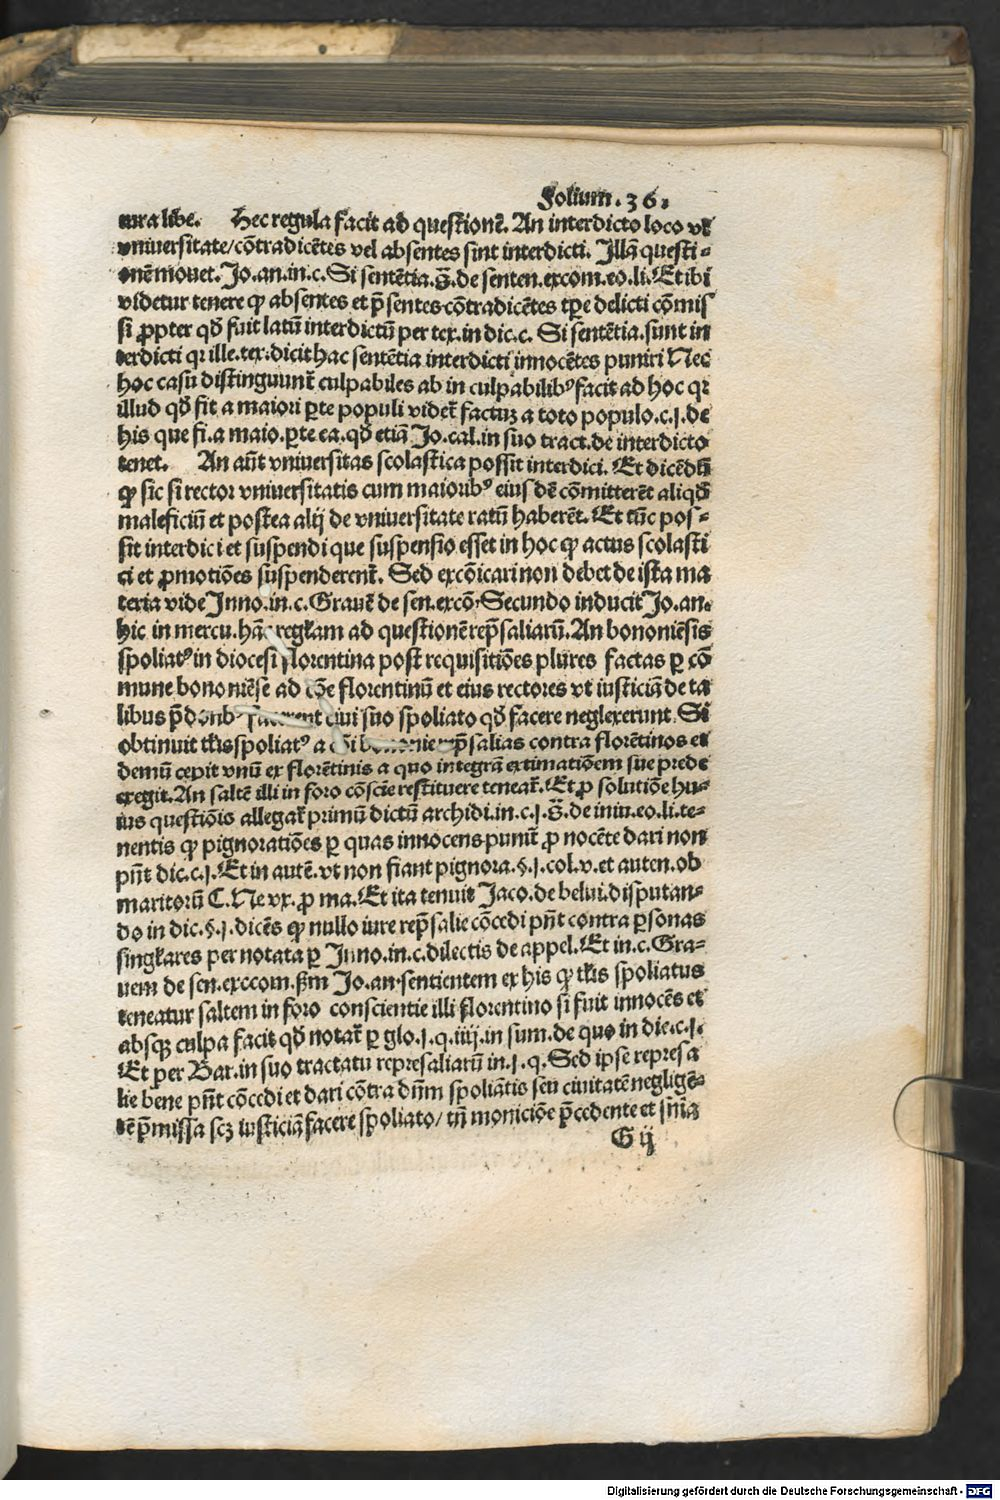 Folium.36.
iura libe. Hec regula facit ad questionē. An interdicto loco vĺ
vniuersitate/cōtradicētes vel absentes sint interdicti. Illā questi⸗
onē mouet. Jo.an.in.c. Si sentētia.§.de senten.excom.eo.li. Et ibi
videtur tenere ꝙ absentes et p̄sentes cōtradicētes tp̄e delicti cōmis
si ꝓpter qd̄ fuit latū interdictū per tex.in dic.c. Si sentētia.sunt in
terdicti qꝛ ille.tex.dicit hac sentētia interdicti innocētes puniri Nec
hoc casu distinguunt᷑ culpabiles ab in culpabilibꝰ facit ad hoc qꝛ
illud qd̄ fit a maiori ꝑte populi videt᷑ factuꝫ a toto populo.c.j.de
his que fi.a maio.ꝑte ca.qd̄ etiā Jo.cal.in suo tract.de interdicto
tenet. An aūt vniuersitas scolastica possit interdici. Et dicēdū
ꝙ sic si rector vniuersitatis cum maioribꝰ eius dē cōmitterēt aliqd̄
maleficiū et postea alij de vniuersitate ratū haberēt. Et tūc pos⸗
sit interdici et suspendi que suspensio esset in hoc ꝙ actus scolasti
ci et ꝓmotiōes suspenderent᷑. Sed excōicari non debet de ista ma
teria vide Inno.in.c. Grauē de sen.excō. Secundo inducit Jo.an.
hic in mercu.hāc regl̄am ad questionē rep̄saliarū. An bononiēsis
spoliatꝰ in diocesi florentina post requisitiōes plures factas ꝑ cō
mune bononiēse ad cōe florentinū et eius rectores vt iusticiā de ta
libus p̄donibꝰ facerent ciui suo spoliato qd̄ facere neglexerunt Si
obtinuit tal̄is spoliatꝰ a cōi bononie rep̄salias contra florētinos et
demū cepit vnū ex florētinis a quo integrā extimatiōem sue prede
exegit. An saltē illi in foro cōsciē restituere teneat᷑. Et ꝓ solutiōe hu⸗
ius questiōis allegat᷑ primū dictū archidi.in.c.j.§.de iniu.eo.li.te⸗
nentis ꝙ pignoratiōes ꝑ quas innocens punit᷑ ꝓ nocēte dari non
pn̄t dic.c.j. Et in autē.vt non fiant pignora.§.j.col.v.et auten.ob
maritorū C. Ne vx.ꝓ ma. Et ita tenuit Jaco.de belui.disputan⸗
do in dic.§.j.dicēs ꝙ nullo iure rep̄salie cōcedi pn̄t contra ꝑsonas
singl̄ares per notata ꝑ Inno.in.c.dilectis de appel. Et in.c.Gra⸗
uem de sen.exccom.ẜm Jo.an.sentientem ex his ꝙ tal̄is spoliatus
teneatur saltem in foro conscientie illi florentino si fuit innocēs et
absqꝫ culpa facit qd̄ notat᷑ ꝑ glo.j.q.iiij.in sum.de quo in dic.c.j.
Et per Bar.in suo tractatu represaliarū in.j.q. Sed ipse represa
lie bene pn̄t cōcedi et dari cōtra dn̄m spoliātis seu ciuitatē negligē⸗
tē p̄missa scꝫ iusticiā facere spoliato/tn̄ moniciōe p̄cedente et sn̄ia
G ij
Digitalisierung gefördert durch die Deutsche Forschungsgemeinschaft - DFG